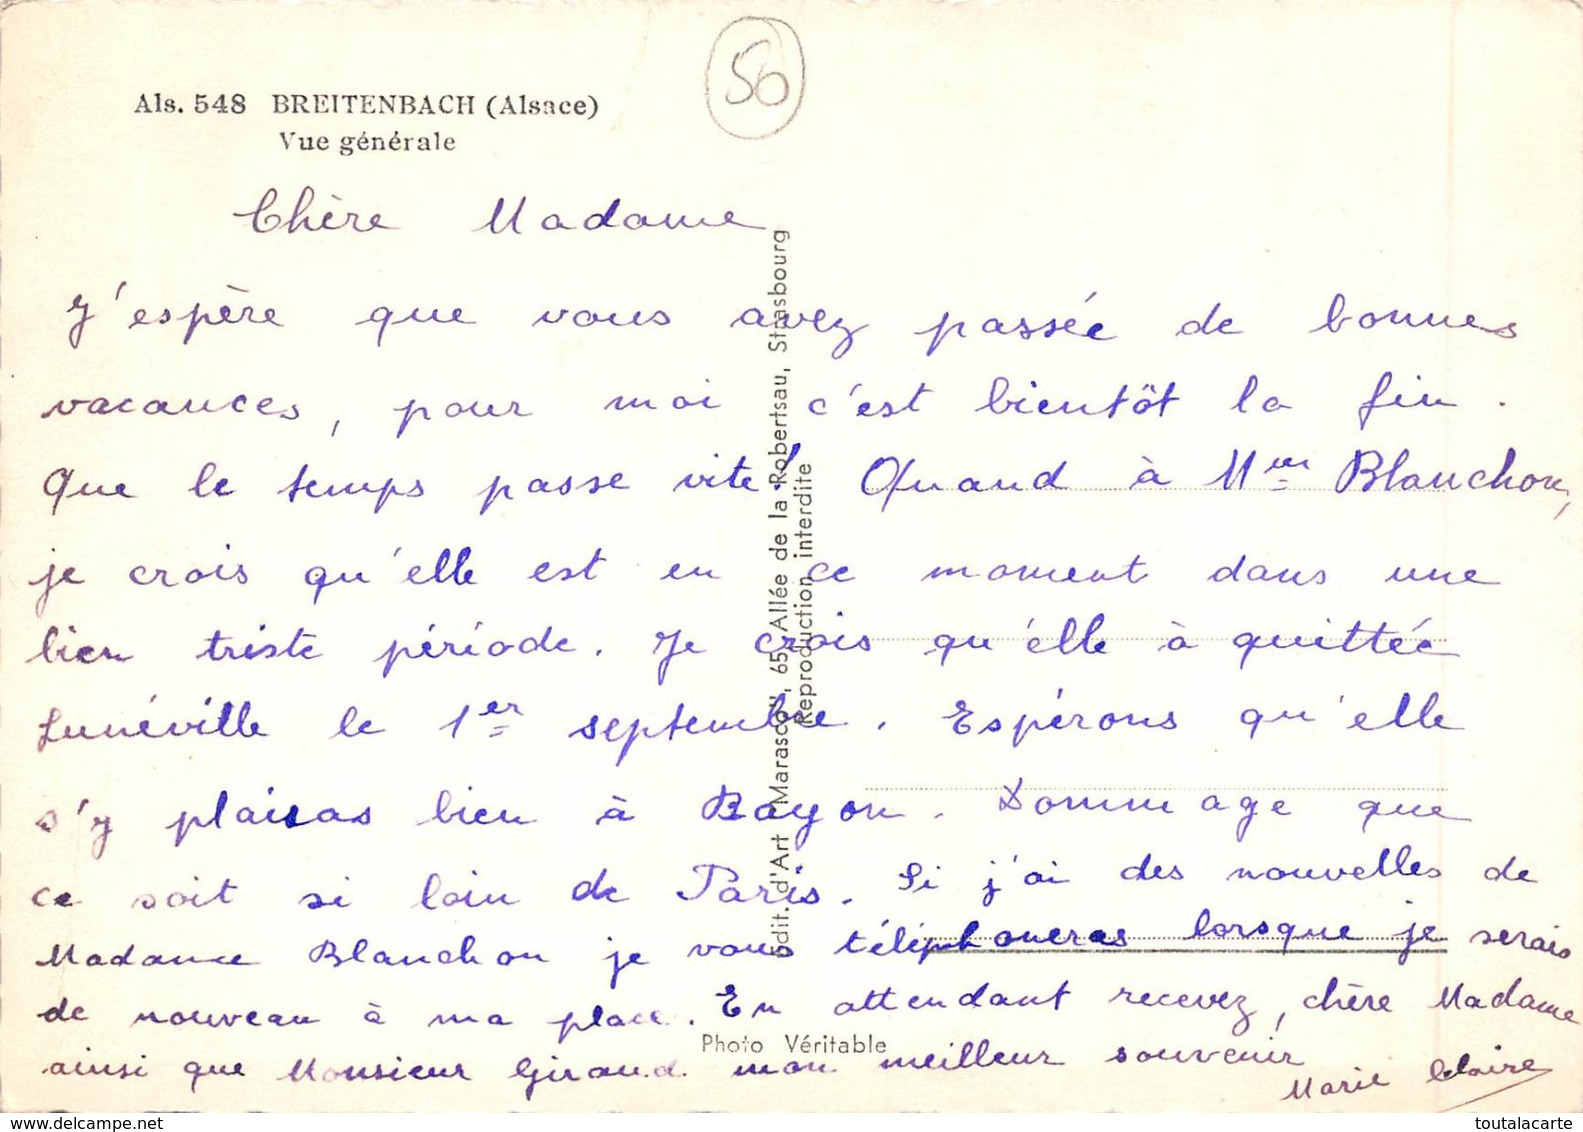 56
Als. 548 BREITENBACH (Alsace)
Vue générale
Chère Madame
J'espère que vous avez passée de bonnes
vacances, pour moi c'est bientôt la fin.
Que le temps passe vite! Quand à Mme Blanchon,
je crois qu'elle est en ce moment dans une
bien triste période. Je crois qu'elle à quittée
Lunéville le 1er septembre. Espérons qu'elle
s'y plaisas bien à Bayon. Dommage que
ce soit si loin de Paris. Si j'ai des nouvelles de
Madame Blanchon je vous téléphoneras lorsque je serais
de nouveau à ma place. En attendant recevez, chère Madame
ainsi que Monsieur Giraud mon meilleur souvenir
Marie Claire
Edit. d'Art 65, Allée de la Robertsau, Strasbourg
Reproduction interdite
Photo Véritable
toutalacarte
www.delcampe.net